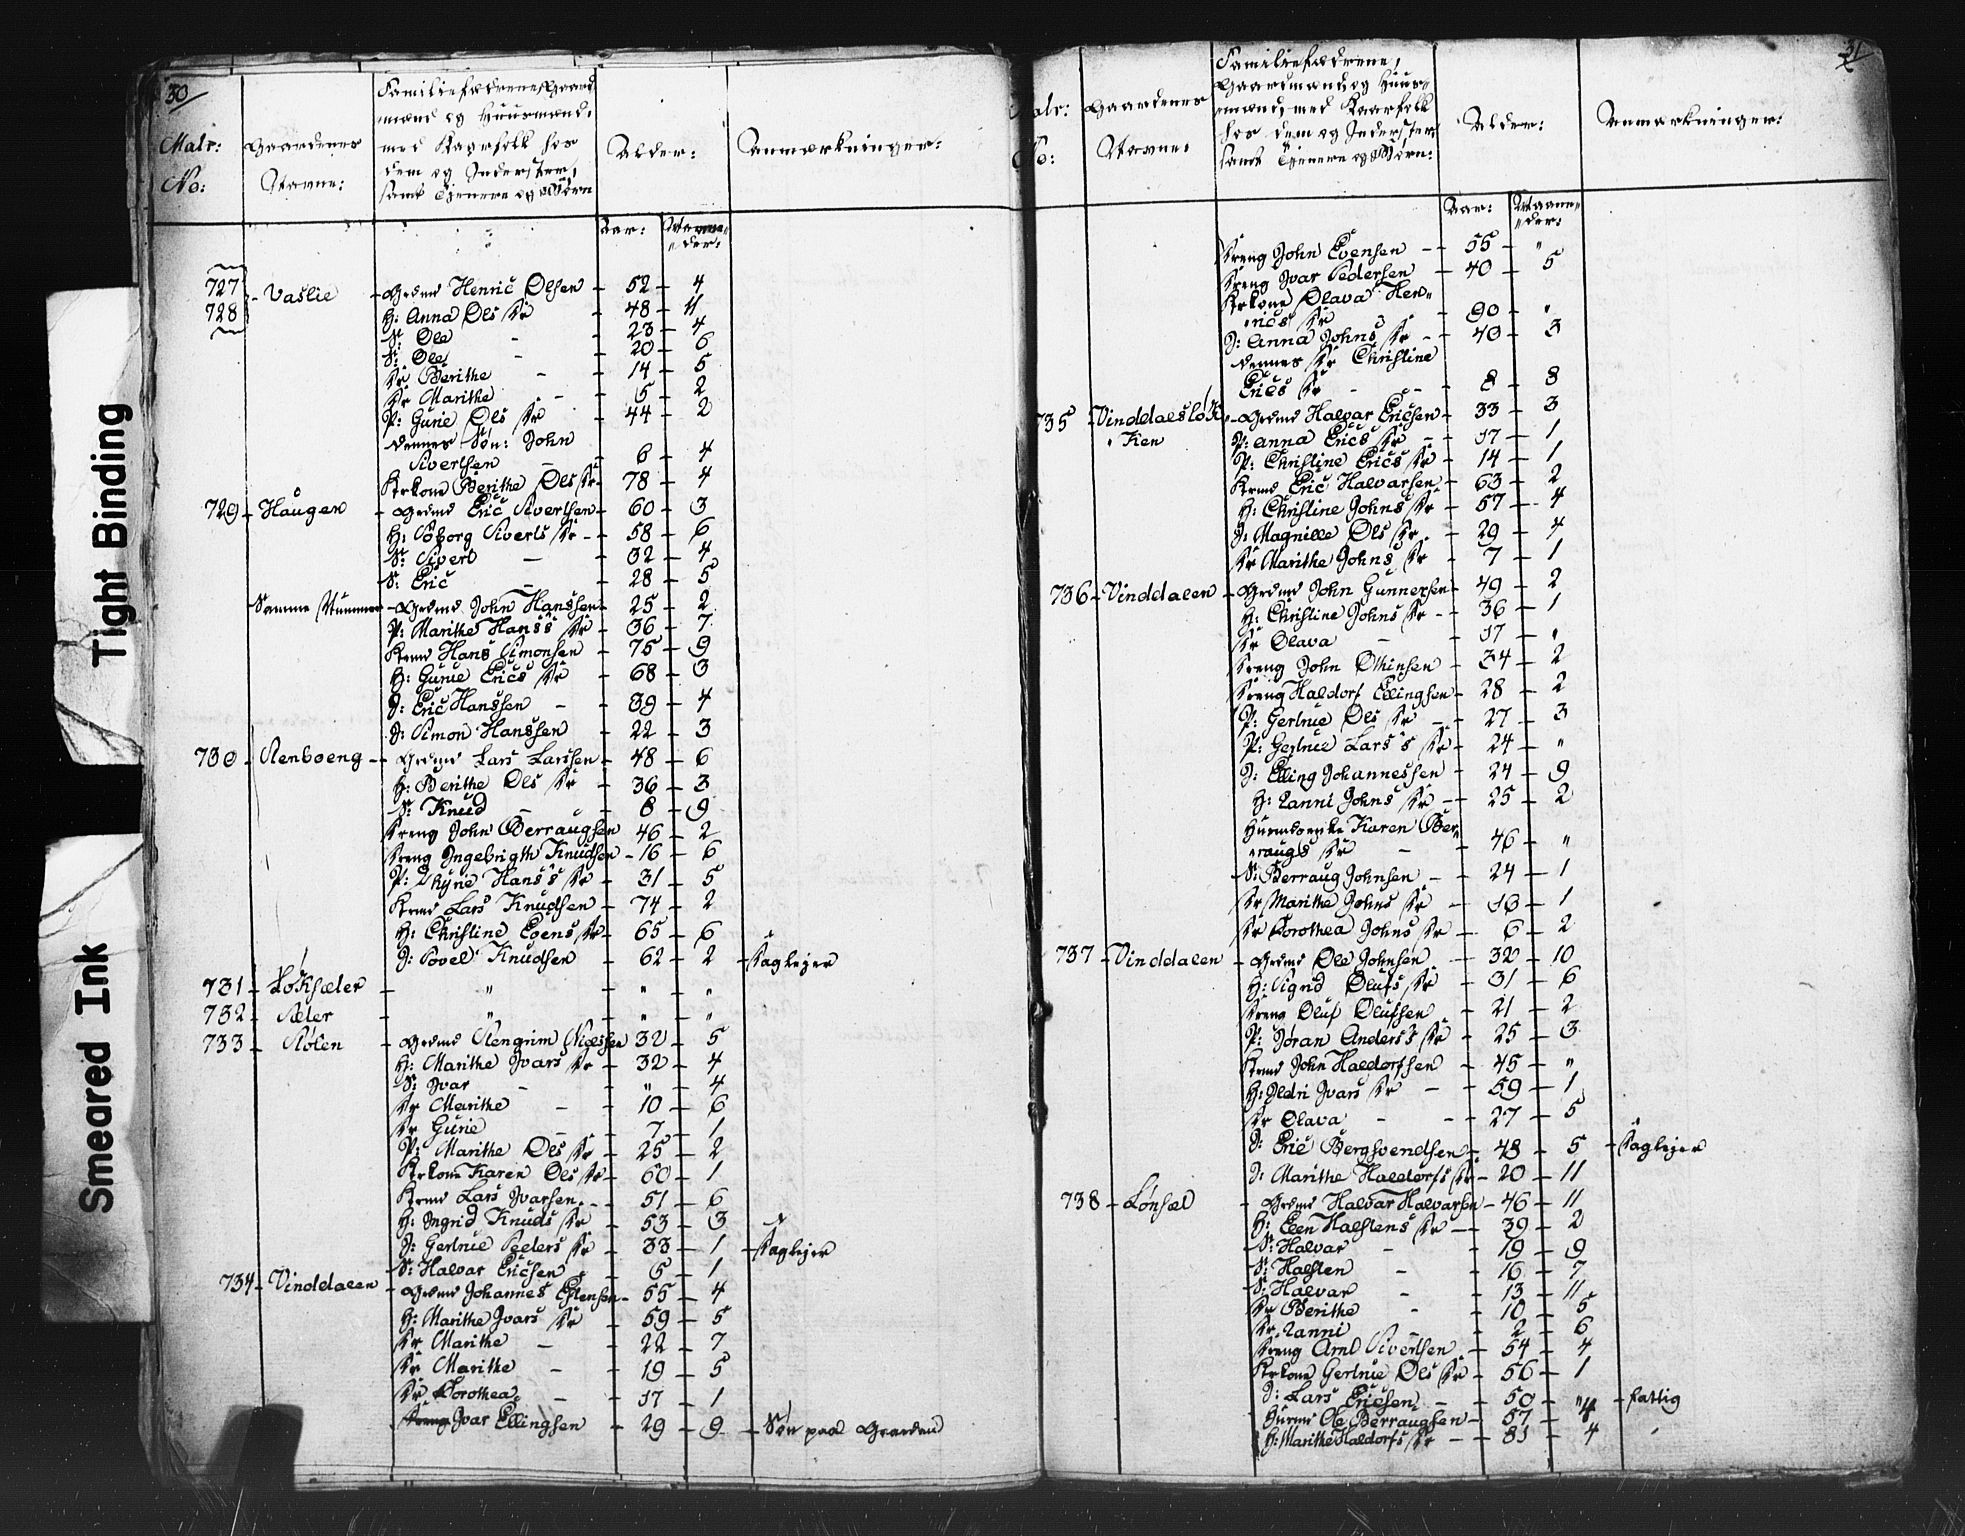 Tight Binding
Smeared Ink
30
Matr: No:
Gaardenes Navne:
Familiefædrene, Gaard
mænd og Huusmænd,
med Kaarfolk hos
dem og Inderster,
samt Tjenere og Børn
Alder:
Anmærkninger:
Aar: Maane=
=der:
727 728 - Vaslie - Grdmd Henric Olsen - 52 - 4
H: Anna Ols Dr - 48 - 11
S: Ole - 23 - 4
S: Ole - 20 - 6
Dr Berithe - 14 - 5
Dr Marithe - 5 - 2
P: Gurie Ols Dr - 44 - 2
dennes Søn: John
Sivertsen - 6 - 4
Krkone Berithe Ols Dr - 78 - 4
729 - Haugen - Grdmd Eric Sivertsen - 60 - 3
H: Søborg Siverts Dr - 58 - 6
S: Sivert - 32 - 4
S: Eric - 28 - 5
Samme Nummer - Grdmd John Hanssen - 25 - 2
P: Marithe Hans's Dr - 36 - 7
Krmd Hans Simonsen - 75 - 9
H: Gurie Erics Dr - 68 - 3
I: Eric Hanssen - 39 - 4
I: Simon Hanssen - 22 - 3
730 - Stenboeng - Grdmd Lars Larssen - 48 - 6
H: Berithe Ols Dr - 36 - 3
S: Knud - 8 - 9
Dreng John Berraugsen - 46 - 2
Dreng Ingebrigth Knudsen - 16 - 6
P: Thyne Hans's Dr - 31 - 5
Krmd Lars Knudsen - 74 - 2
H: Christine Evens Dr - 65 - 6
I: Povel Knudsen - 62 - 2 - Dagleyer
731 - Løksæter - " - " - "
732 - Sæter - " - " - "
733 - Stølen - Grdmd Stengrim Nielssen 32 - 5
H: Marithe Ivars Dr - 32 - 4
S: Ivar - " - 4
Dr Marithe - 10 - 6
Dr Gurie - 7 - 1
P: Marithe Ols Dr - 25 - 2
Krkone Karen Ols Dr - 60 - 1
Krmd Lars Ivarsen - 51 - 6
H: Ingrid Knuds Dr - 53 - 3
I: Gertrue Peders Dr - 33 - 1 - Dagleyer
S: Halvar Ericsen - 5 - 1
734 - Vinddalen - Grdmd Johannes Estensen - 55 - 4
H: Marithe Ivars Dr - 59 - 5
Dr Marithe - 22 - 7
Dr Marithe - 19 - 5
Dr Dorothea - 17 - 1
Dreng Ivar Ellingsen - 29 - 9 - Søn paa Gaarden
31
Matr: No:
Gaardenes Navne:
Familiefædrene,
Gaardmænd og Huus-
mænd, med Kaarfolk
hos dem og Inderster
samt Tjenere og Børn:
Alder:
Anmærkninger:
Aar: Maane=
=der:
Dreng John Evensen - 55 - "
Dreng Ivar Pedersen - 40 - 5
Krkone Olava Hen=
=rics Dr - 90 - "
I: Anna Johns Dr - 40 - 3
dennes Dr Christine
Erics Dr - 8 - 8
735 - Vinddalsløk - Grdmd Halvar Ericsen - 33 - 3
=ken P: Anna Erics Dr - 17 - 1
P: Christine Erics Dr - 14 - 1
Krmd Eric Halvarsen - 63 - 2
H: Christine Johns Dr - 57 - 4
I: Magnille Ols Dr - 29 - 4
Dr Marithe Johns Dr - 7 - 1
736 - Vinddalen - Grdmd John Gunnersen - 49 - 2
H: Christine Johns Dr - 36 - 1
Dr Olava - 17 - "
Dreng John Othinsen - 34 - 2
Dreng Haldorf Ellingsen - 28 - 2
P: Gertrue Ols Dr - 27 - 3
P: Gertrue Lars's Dr - 24 - "
I: Elling Johannessen - 24 - 9
H: Ranni Johns Dr - 25 - 2
Huusmdsenke Karen Ber=
=raugs Dr - 46 - "
S: Berraug Johnsen - 24 - 1
Dr Marithe Johns Dr - 13 - 1
Dr Dorothea Johns Dr - 6 - 2
737 - Vinddalen - Grdmd Ole Johnsen 32 - 10
H: Sigrid Olufs Dr - 31 - 6
Dreng Oluf Olufsen - 21 - 2
P: Jøran Anders's Dr - 25 - 3
Krmd John Haldorfsen - 45 - "
H: Ildri Ivars Dr - 59 - 1
Dr Olava - 27 - 5
I: Eric Bergsvendsen - 48 - 5 - Dagleyer
I: Marithe Haldorfs Dr - 20 - 11
738 - Lønsæt - Grdmd Halvar Halvarsen - 46 - 11
H: Elen Halstens Dr - 39 - 2
S: Halvar - 19 - 9
S: Halsten - 16 - 7
S: Halvar - 13 - 11
Dr Berithe - 10 - 5
Dr Ranni - 2 - 6
Dreng Arnt Sivertsen - 54 - 4
Krkone Gertrue Ols Dr - 56 - 1
I: Lars Ericsen - 50 - " - fattig
Huusmd Ole Berraugsen - 57 - 4
H: Marithe Haldorfs Dr - 81 - 4